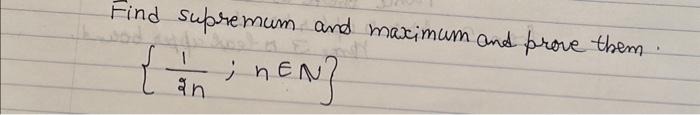 Find supremum and maximum and prove them.
{ 1/2n ; n ∈ N }